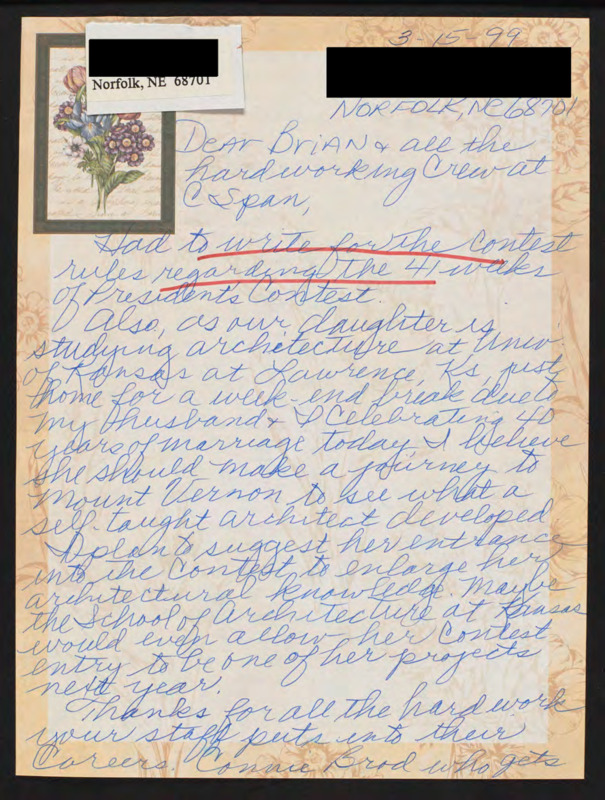 3-15-99
Norfolk, NE 68701
NORFOLK, NE 68701
Dear BriAN & all the
hardworking Crew at
C Span,
Had to write for the Contest
rules regarding the 41 weeks
of Presidents Contest.
Also, as our daughter is
studying architecture at Univ.
of Kansas at Lawrence, Ks, just
home for a week-end break due to
my husband & I Celebrating 40
years of marriage today I believe
she should make a journey to
Mount Vernon to see what a
self-taught architect developed
I plan to suggest her entrance
into the Contest to enlarge her
architectural knowledge. Maybe
the School of Architecture at Kansas
would even allow her Contest
entry to be one of her projects
next year.
Thanks for all the hard work
your staff puts into their
Careers. Connie Brod who gets